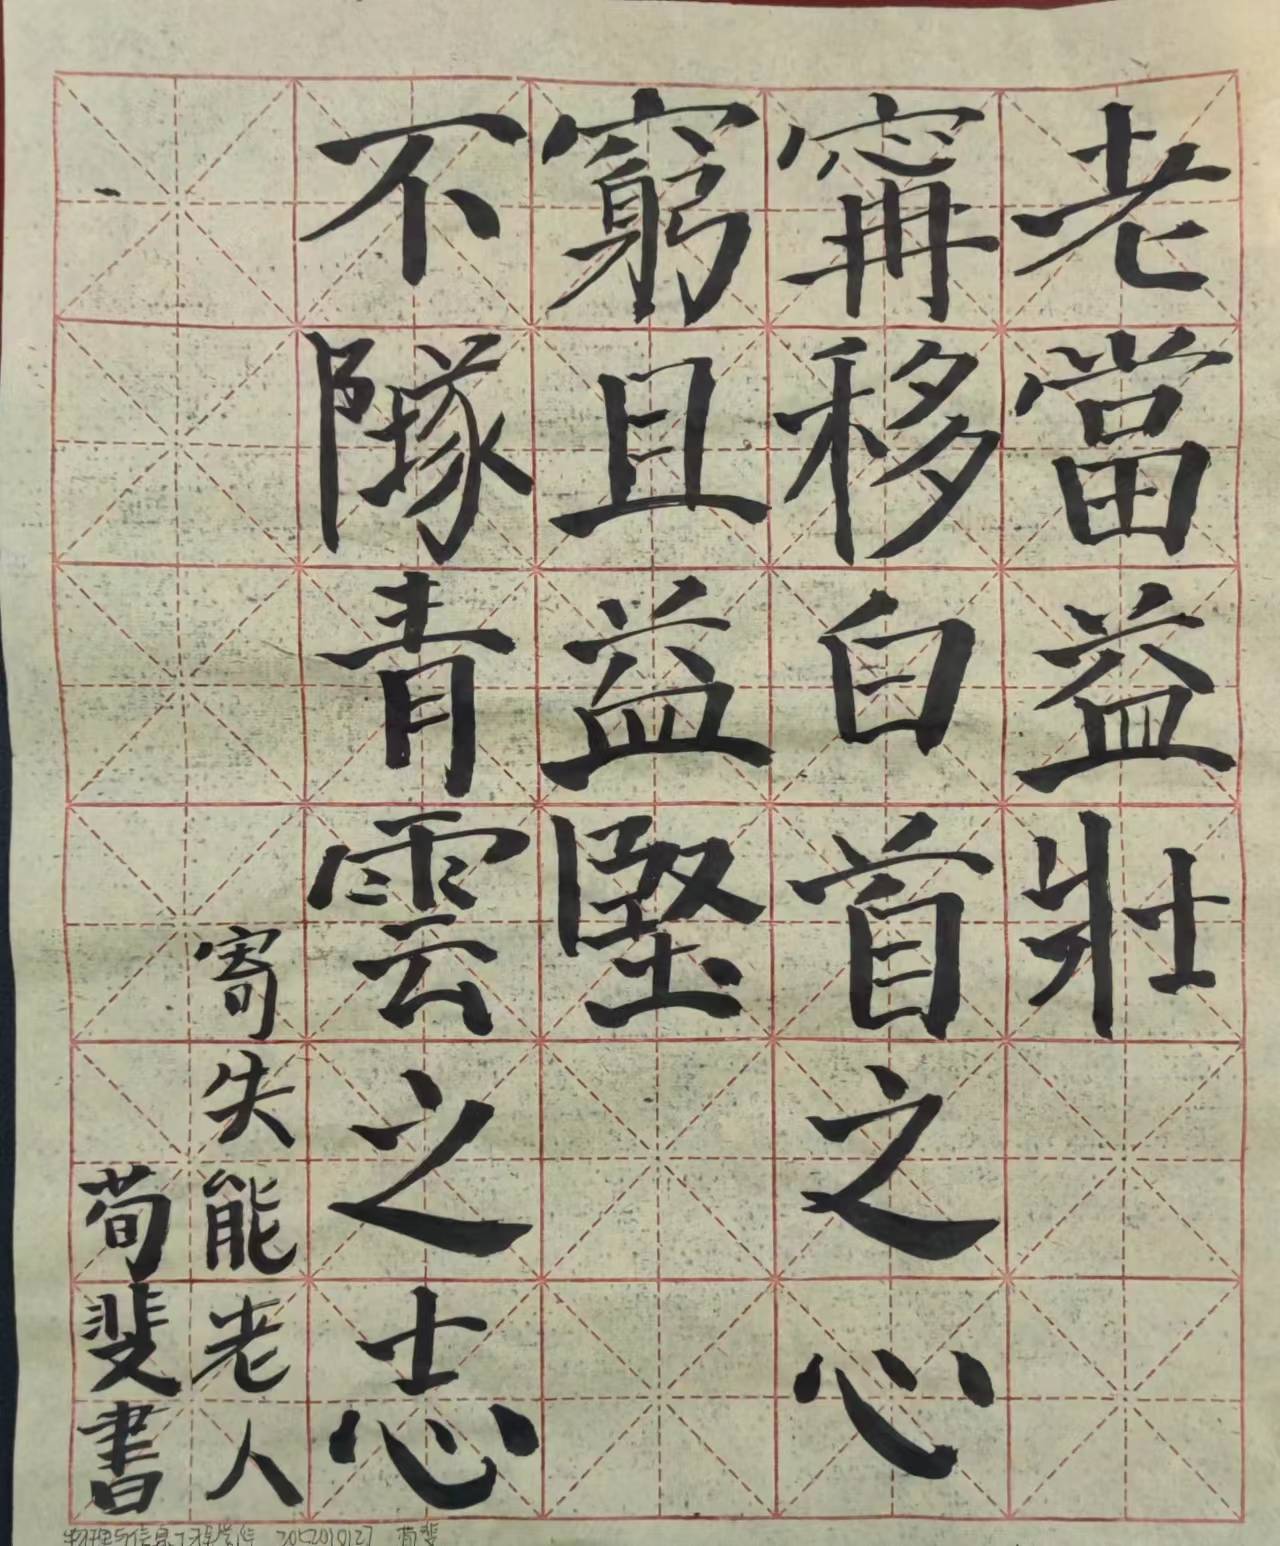 老當益壯
寗移白首之心
窮且益堅
不墜青雲之志
寄失能老人
荀斐書
物理与信息工程学院 荀斐